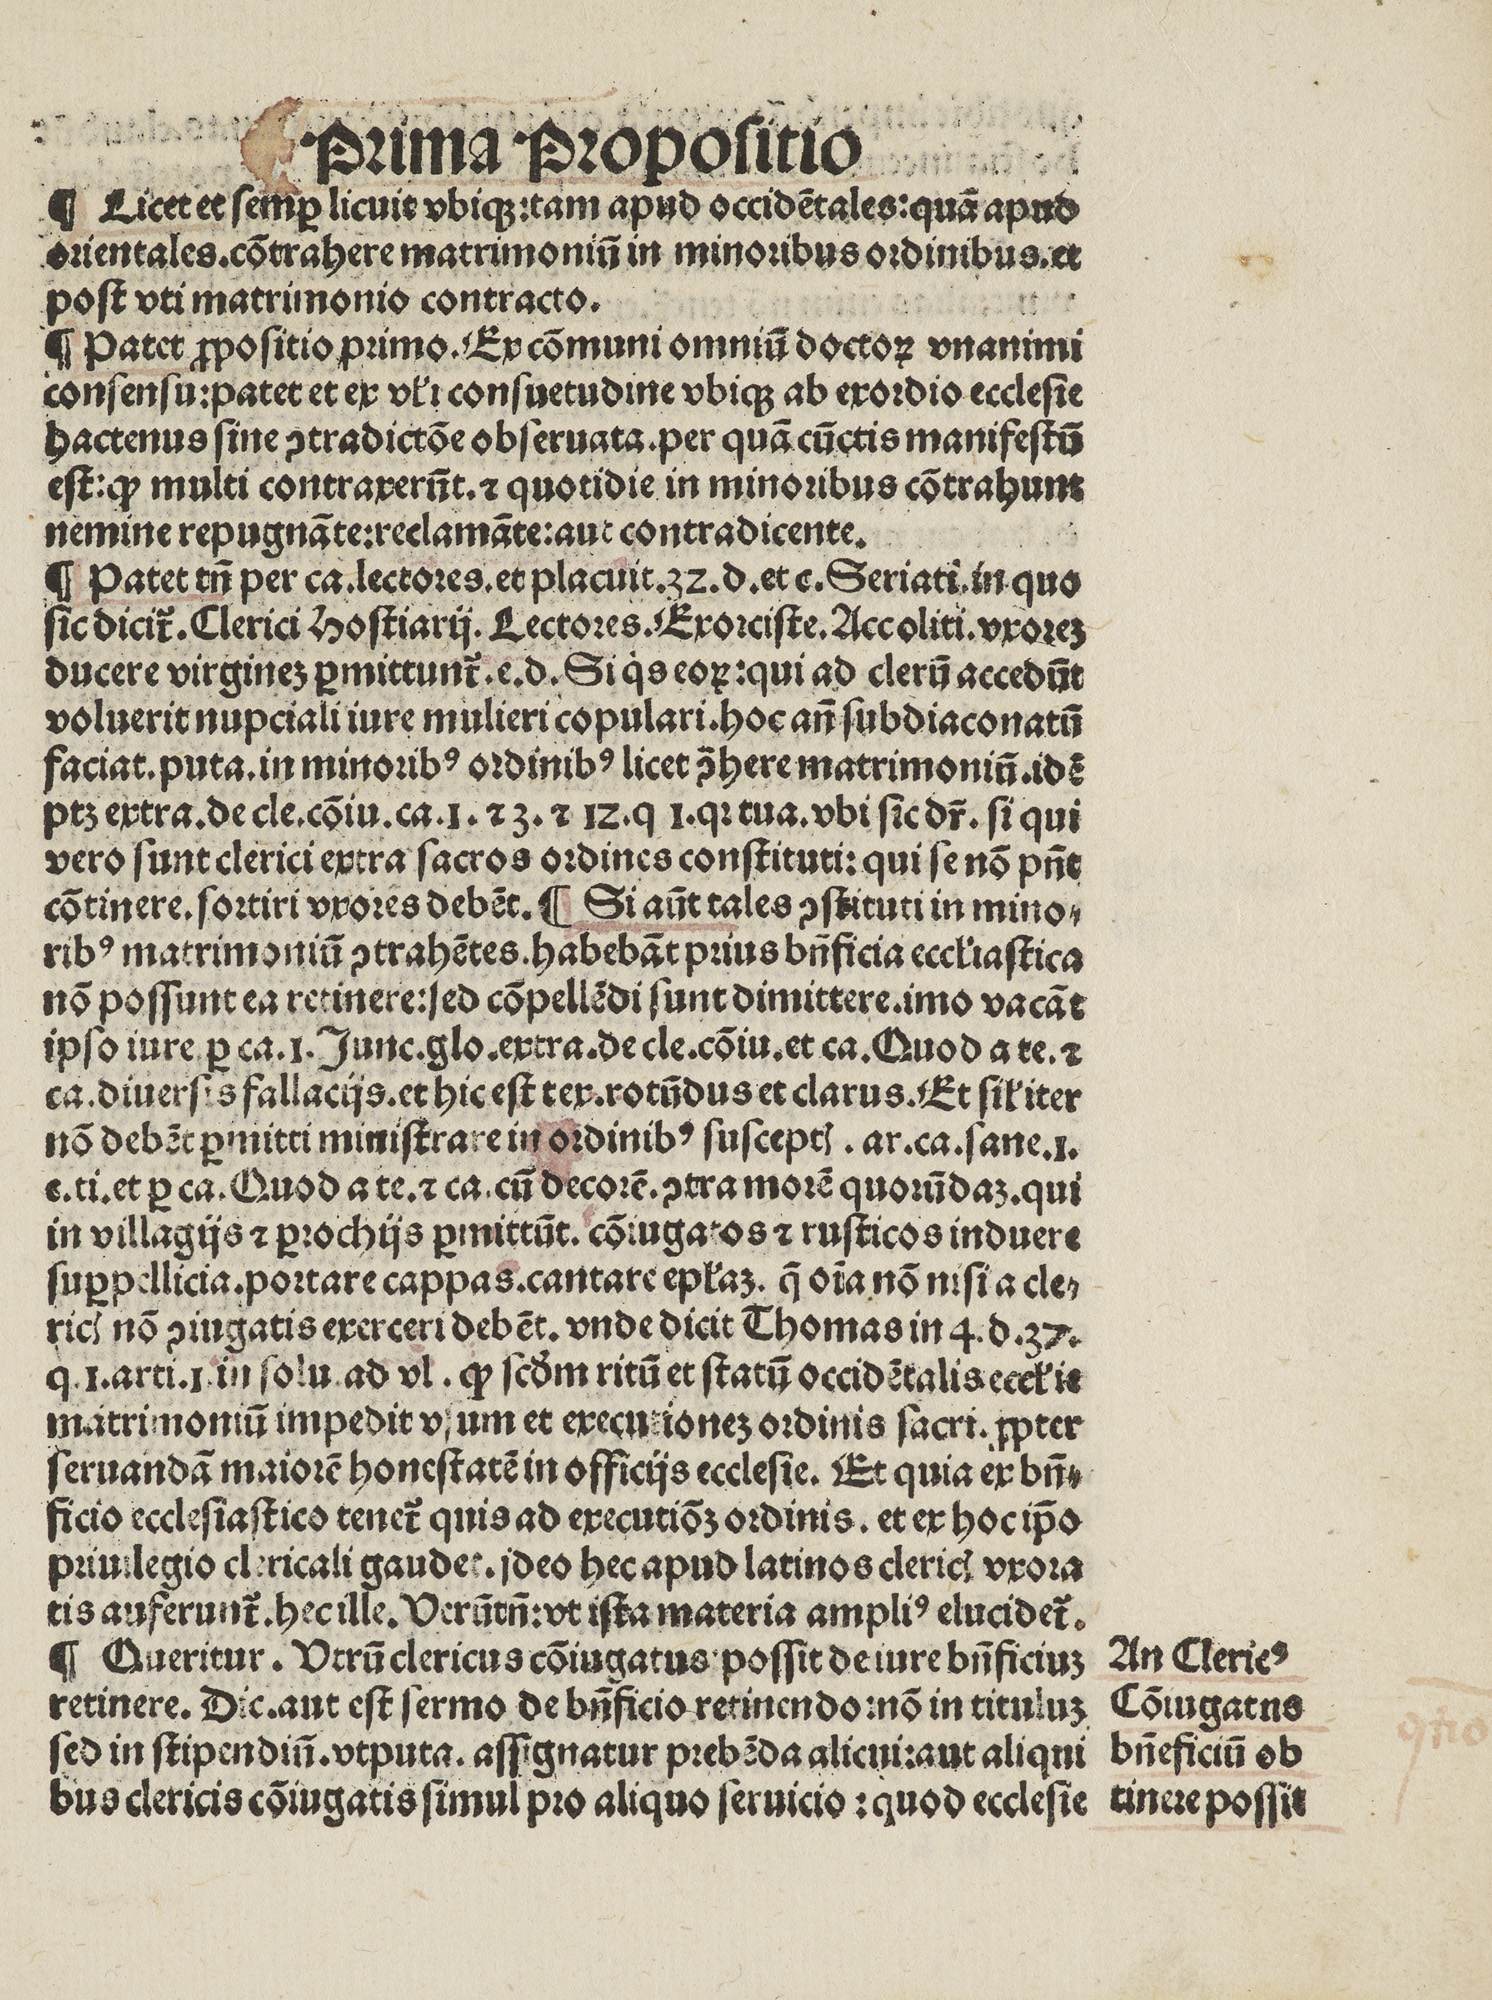 Prima Propositio
¶ Licet et semꝑ licuit vbiqꝫ:tam apud occidētales:quā apud
orientales.cōtrahere matrimoniū in minoribus ordinibus.et
post vti matrimonio contracto.
¶ Patet ꝓpositio primo.Ex cōmuni omniū doctoꝝ vnanimi
consensu:patet et ex vƚi consuetudine vbiqꝫ ab exordio ecclesie
hactenus sine ꝯtradictōe obseruata.per quā cūctis manifestū
est:ꝙ multi contraxerūt.⁊ quotidie in minoribus cōtrahunt
nemine repugnāte:reclamāte:aut contradicente.
¶ Patet tn̄ per ca.lectores.et placuit.32.d.et c.Seriatī.in quo
sic dicit᷑.Clerici Hostiarij.Lectores.Exorciste.Accoliti.vxorez
ducere virginez ꝑmittunt᷑.e.d.Si q̇s eoꝝ:qui ad clerū accedūt
voluerit nupciali iure mulieri copulari.hoc an̄ subdiaconatū
faciat.puta.in minoribꝰ ordinibꝰ licet ꝯ̄here matrimoniū.idē
ptꝫ extra.de cle.cōiu.ca.1.⁊ 3.⁊ 12.q 1.qꝛ tua.vbi sic dr̄.si qui
vero sunt clerici extra sacros ordines constituti:qui se nō pn̄t
cōtinere.sortiri vxores debēt.¶ Si aūt tales ꝯstituti in mino⸗
ribꝰ matrimoniū ꝯtrahētes.habebāt prius bn̄ficia eccƚiastica
nō possunt ea retinere:sed cōpellēdi sunt dimittere.imo vacāt
ipso iure ꝑ ca.1.Junc.glo.extra.de cle.cōiu.et ca.Quod a te.⁊
ca.diuersis fallacijs.et hic est tex.rotūdus et clarus.Et siƚiter
nō debēt ꝑmitti ministrare in ordinibꝰ susceptꝭ.ar.ca.sane.1.
e.ti.et ꝑ ca.Quod a te.⁊ ca.cū decorē.ꝯtra morē quorūdaz.qui
in villagijs ⁊ ꝑrochijs ꝑmittūt.cōiugatos ⁊ rusticos induere
suꝑpellicia.portare cappas.cantare epƚaz. q̄ oīa nō nisi a cle⸗
ricꝭ nō ꝯiugatis exerceri debēt.vnde dicit Thomas in 4.d.37.
q.1.arti.1.in solu.ad vl.ꝙ scd̄m ritū et statū occidētalis eccƚie
matrimoniū impedit vsum et executionez ordinis sacri.ꝓpter
seruandā maiorē honestatē in officijs ecclesie. Et quia ex bn̄⸗
ficio ecclesiastico tenet᷑ quis ad executiōꝫ ordinis.et ex hoc ip̄o
priuilegio clericali gaudet.jdeo hec apud latinos clericꝭ vxora
tis auferunt᷑.hec ille.Verūtn̄:vt ista materia ampliꝰ elucidet᷑.
¶ Queritur.Vtrū clericus cōiugatus possit de iure bn̄ficiuꝫ
retinere.Dic.aut est sermo de bn̄ficio retinendo:nō in tituluꝫ
sed in stipendiū.vtputa.assignatur prebēda alicui:aut aliqui
bus clericis cōiugatis simul pro aliquo seruicio:quod ecclesie
An Clericꝰ
Cōiugatus
bn̄eficiū ob
tinere possit